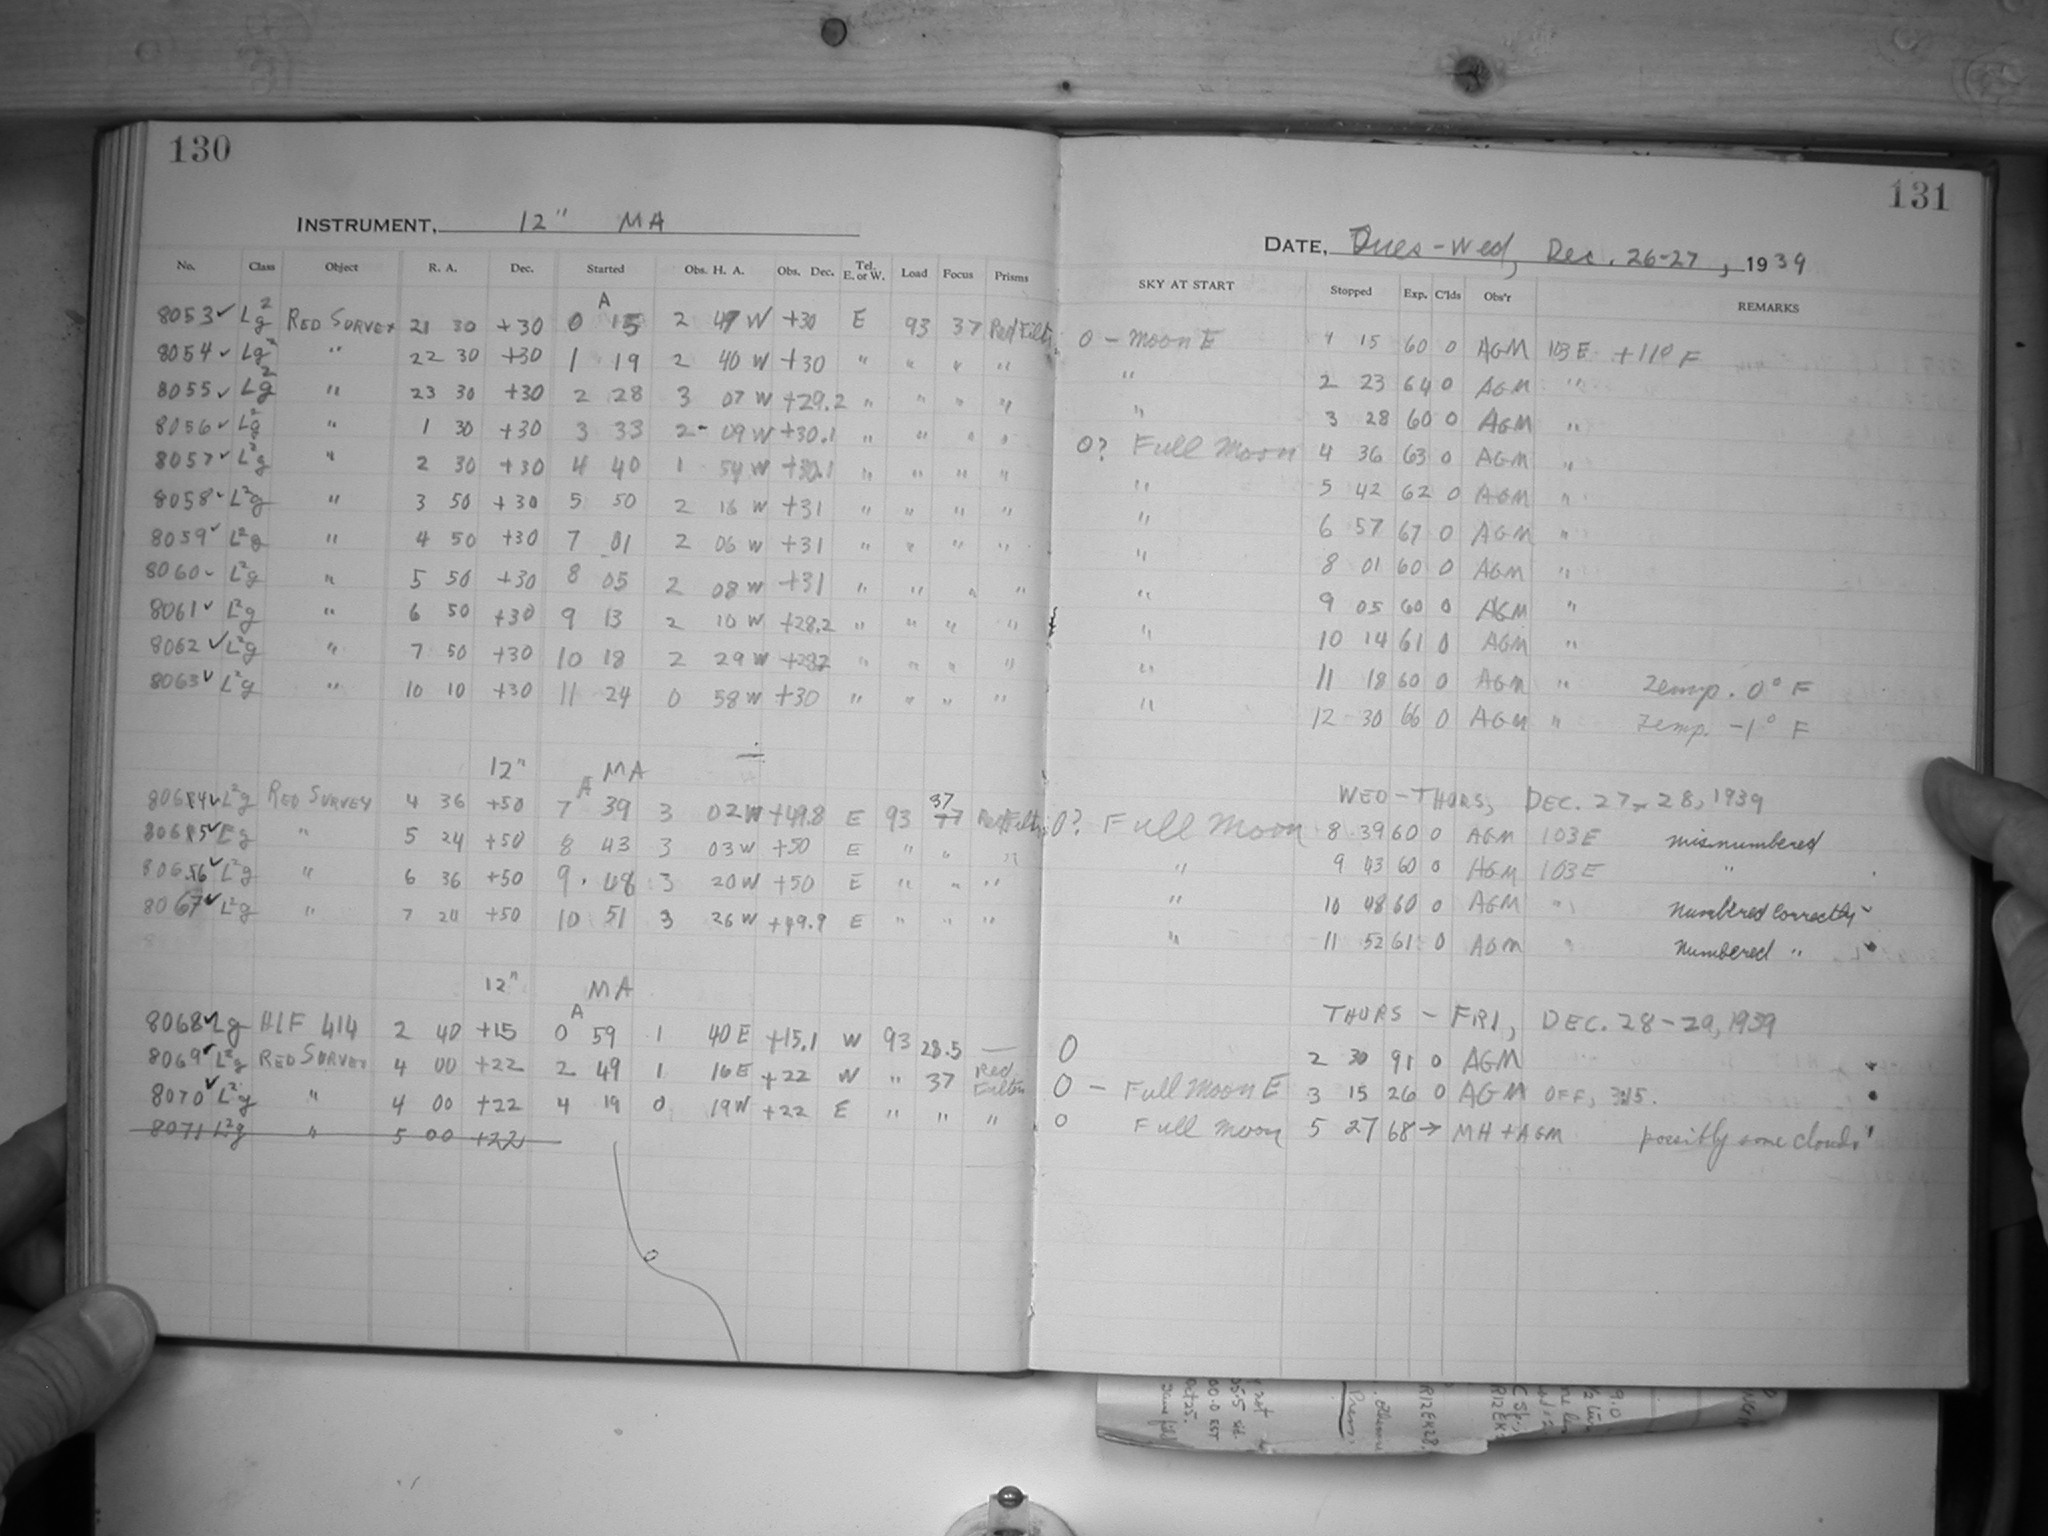 130
INSTRUMENT, 12" MA
No. Class Object R. A. Dec. Started Obs. H. A. Obs. Dec. Tel. E. or W. Load Focus Prisms
A
8053 ✓ L²g RED SURVEY 21 30 +30 0 15 2 47 W +30 E 93 37 Red Filt
8054 ✓ Lg² " 22 30 +30 1 19 2 40 W +30 " " " "
8055 ✓ Lg² " 23 30 +30 2 28 3 07 W +29.2 " " " "
8056 ✓ L²g " 1 30 +30 3 33 2 - 09 W +30.1 " " " "
8057 ✓ L²g " 2 30 +30 4 40 1 54 W +30.1 " " " "
8058 ✓ L²g " 3 50 +30 5 50 2 16 W +31 " " " "
8059 ✓ L²g " 4 50 +30 7 01 2 06 W +31 " " " "
8060 ✓ L²g " 5 50 +30 8 05 2 08 W +31 " " " "
8061 ✓ L²g " 6 50 +30 9 13 2 10 W +28.2 " " " "
8062 ✓ L²g " 7 50 +30 10 18 2 29 W +28.2 " " " "
8063 ✓ L²g " 10 10 +30 11 24 0 58 W +30 " " " "
12" MA
A
✓ L²g RED SURVEY 4 36 +50 7 39 3 02 W +49.8 E 93 37 Red Filt
✓ " 5 24 +50 8 43 3 03 W +50 E " " "
✓ L²g " 6 36 +50 9 48 3 20 W +50 E " " "
8067 ✓ L²g " 7 24 +50 10 51 3 26 W +49.9 E " " "
12" MA
A
8068 ✓ Lg HLF 414 2 40 +15 0 59 1 40 E +15.1 W 93 28.5 —
8069 ✓ L²g RED SURVEY 4 00 +22 2 49 1 16 E +22 W " 37 Red Filter
8070 ✓ L²g " 4 00 +22 4 19 0 19 W +22 E " " "
8071 L²g " 5 00 +22
131
DATE, Tues - Wed, Dec. 26-27, 1939
SKY AT START Stopped Exp. C'lds Obs'r REMARKS
0 - Moon E 1 15 60 0 AGM 103E +11° F
" 2 23 64 0 AGM "
" 3 28 60 0 AGM "
0? Full Moon 4 36 63 0 AGM "
" 5 42 62 0 AGM "
" 6 57 67 0 AGM "
" 8 01 60 0 AGM "
" 9 05 60 0 AGM "
" 10 14 61 0 AGM "
" 11 18 60 0 AGM " Temp. 0° F
" 12 30 66 0 AGM " Temp. -1° F
WED - THURS, DEC. 27-28, 1939
0? Full Moon 8 39 60 0 AGM 103E misnumbered
" 9 43 60 0 AGM 103E "
" 10 48 60 0 AGM " Numbered correctly
" 11 52 61 0 AGM " Numbered "
THURS - FRI, DEC. 28-29, 1939
0 2 30 91 0 AGM
0 - Full Moon E 3 15 26 0 AGM OFF, 3:15.
0 Full Moon 5 27 68 → MH + AGM possibly some clouds